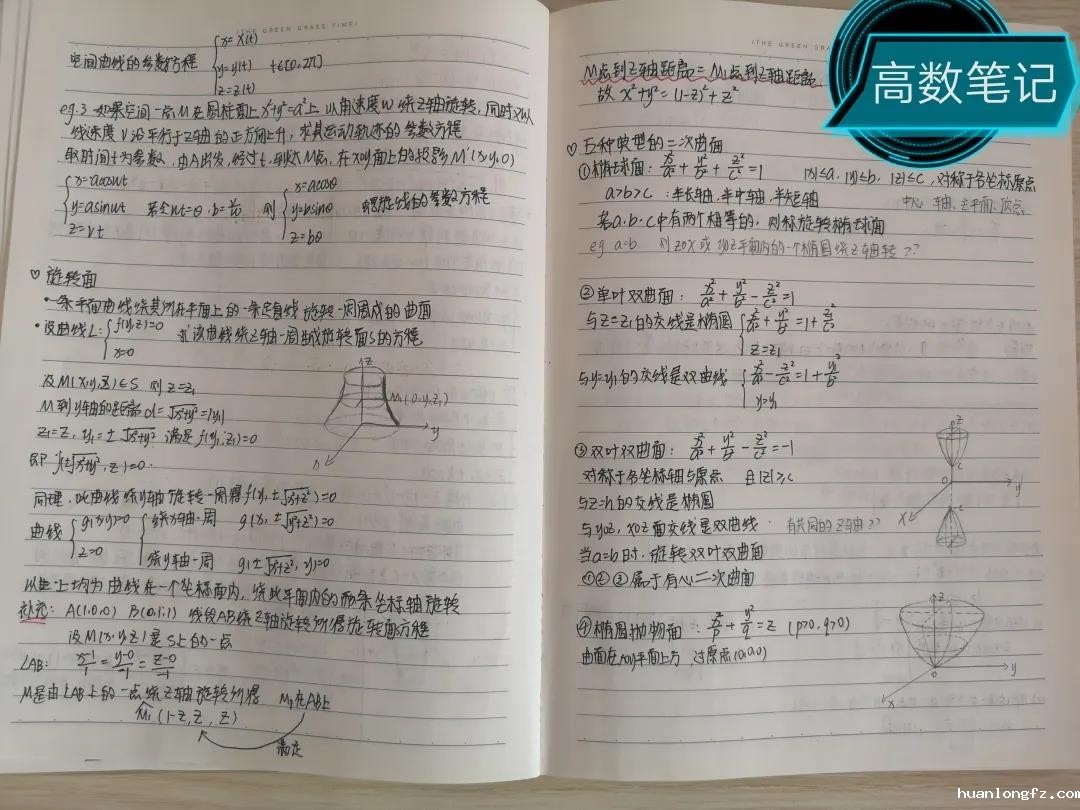 (THE GREEN GRASS TIME)
空间曲线的参数方程 { x=x(t) y=y(t) z=z(t) t∈[0,2π]
eg.3 如果空间一点M在圆柱面上x²+y²=a²上以角速度w绕z轴旋转,同时又以
线速度v沿平行于z轴的正方向上升,求其运动轨迹的参数方程
取时间t为参数,由A出发,经过t,到达M点,在xoy面上的投影M'(x,y,0)
{ x=acoswt y=asinwt z=vt 若令wt=θ, b=v/w 则 { x=acosθ y=asinθ z=bθ 螺旋线的参数方程
♡ 旋转面
·一条平面曲线绕其所在平面上的一条定直线旋转一周围成的曲面
·设曲线L: { f(y,z)=0 x=0 求该曲线绕z轴一周曲成旋转面S的方程
设M(x,y,z)∈S 则z=z₁
M到y轴的距离d=√x²+y²=|y₁|
z₁=z, y₁=±√x²+y² 满足f(y₁,z₁)=0
即f(±√x²+y², z)=0.
z
M₁(0,y₁,z₁)
y
同理,此曲线绕y轴旋转一周得f(y, ±√x²+z²)=0
曲线 { g(x,y)=0 z=0 { 绕x轴一周 g(x, ±√y²+z²)=0
绕y轴一周 g(±√x²+z², y)=0
以上均为曲线在一个坐标面内,绕此平面内的两条坐标轴旋转
补充: A(1,0,0) B(0,1,1) 线段AB绕z轴旋转所得旋转面方程
设M(x,y,z)是S上的一点
LAB: x-1/1 = y-0/-1 = z-0/-1
M是由LAB上的一点绕z轴旋转所得 M₁在AB上
M₁(1-z, z, z)
满足
(THE GREEN GRA
M点到z轴距离=M₁点到z轴距离
故 x²+y²=(1-z)²+z²
♡ 五种典型的二次曲面
①椭球面: x²/a²+y²/b²+z²/c²=1 |x|≤a, |y|≤b, |z|≤c, 对称于各坐标原点
a>b>c: 半长轴,半中轴,半短轴 中心 轴、主平面、顶点
若a.b.c中有两个相等的,则称旋转椭球面
eg a=b 则zox或yoz平面内的一个椭圆绕z轴转??
②单叶双曲面: x²/a²+y²/b²-z²/c²=1
与z=z₁的交线是椭圆 { x²/a²+y²/b²=1+z₁²/c² z=z₁
与y=y₁的交线是双曲线 { x²/a²-z²/c²=1+y₁²/b² y=y₁
③双叶双曲面: x²/a²+y²/b²-z²/c²=-1
对称于各坐标轴与原点 且|z|≥c
与z=h的交线是椭圆
与yoz, xoz面交线是双曲线. 有共同的z轴??
当a=b时,旋转双叶双曲面
①②③属于有心二次曲面
z
c
o
y
x
④椭圆抛物面: x²/p+y²/q=z (p>0,q>0)
曲面在xoy平面上方,过原点(0,0,0)
z
o
y
x
高数笔记
huanlongfz.com